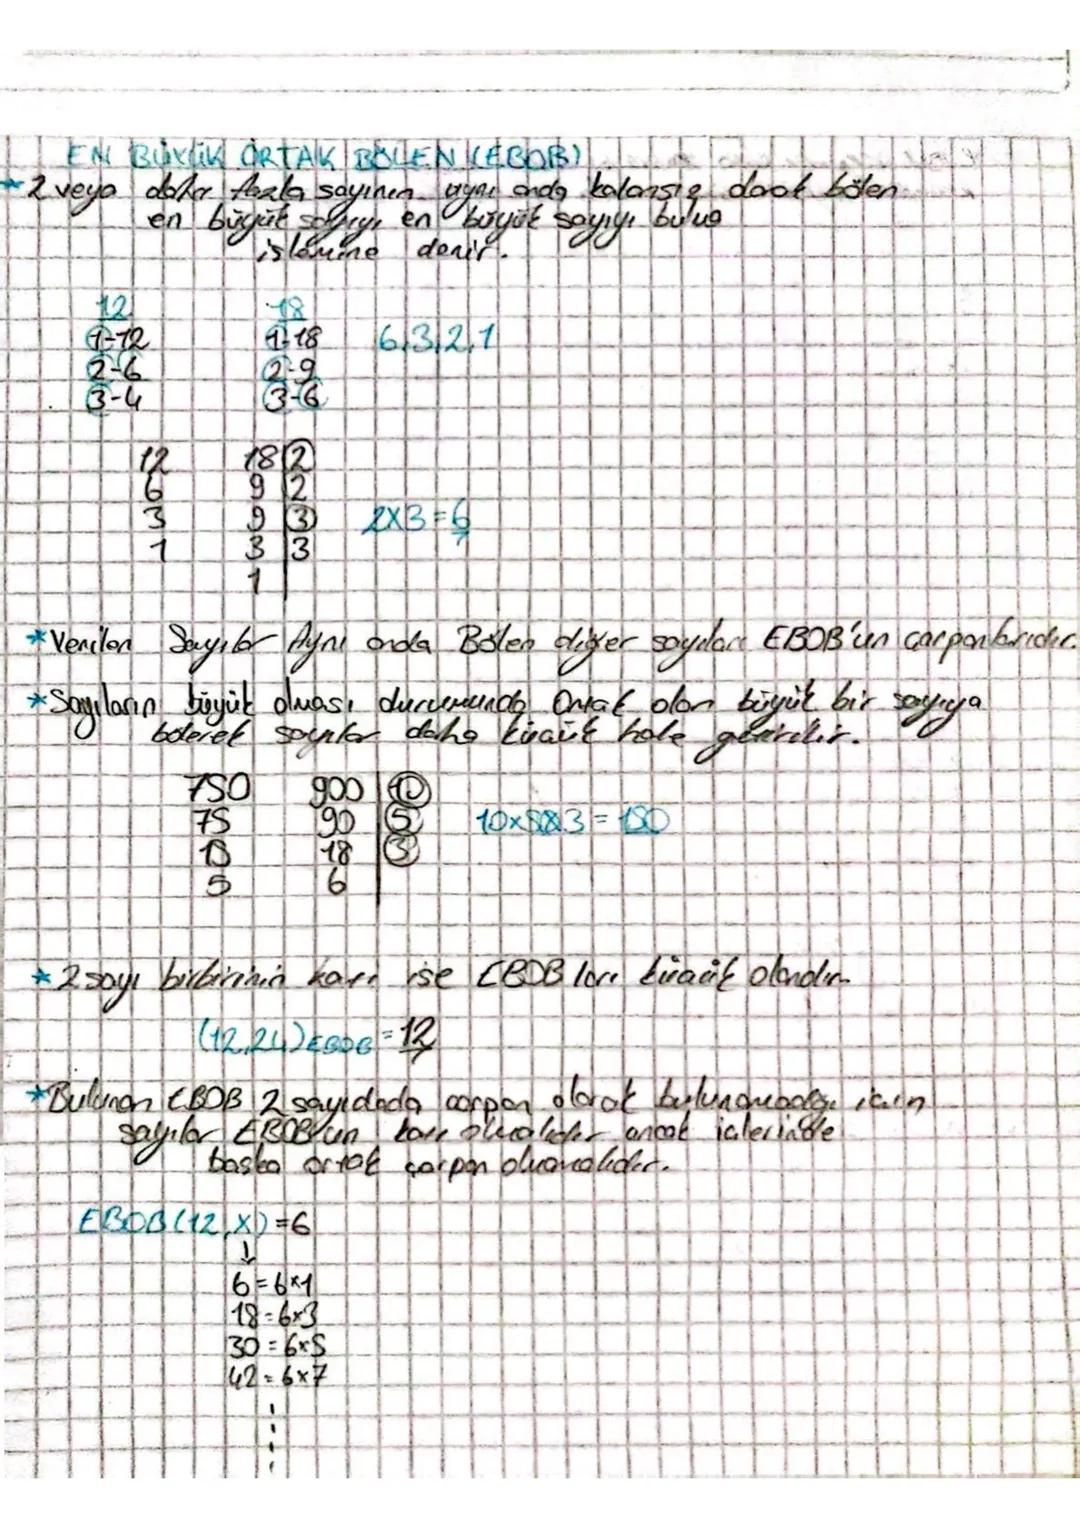 EN BÜYÜK ORTAK BÖLEN (EBOB)
* 2 veya daha fazla sayının aynı anda kalansız olarak bölen
en büyük sayıyı en büyük sayıyı bulma
işlemine denir.
12 18
1-12 1-18 6,3,2,1
2-6 2-9
3-4 3-6
12 18 2
6 9 2
3 9 3 2x3=6
1 3 3
1
* Verilen Sayılar Aynı anda Bölen diğer sayıları EBOB'un çarpanlarıdır.
* Sayıların büyük olması durumunda Ortak olan büyük bir sayıya
bölerek sayılar daha küçük hale getirilir.
750 900 10
75 90 5 10x5x3=150
15 18 3
5 6
* 2 sayı birbirinin katı ise EBOB ları küçük olandır.
(12,24)EBOB=12
* Bulunan EBOB 2 sayıdada çarpan olarak için
sayılar EBOB'un katı olmalıdır ancak içlerinde
başka ortak çarpan olmamalıdır.
EBOB(12,x)=6
↓
6=6x1
18=6x3
30=6x5
42=6x7